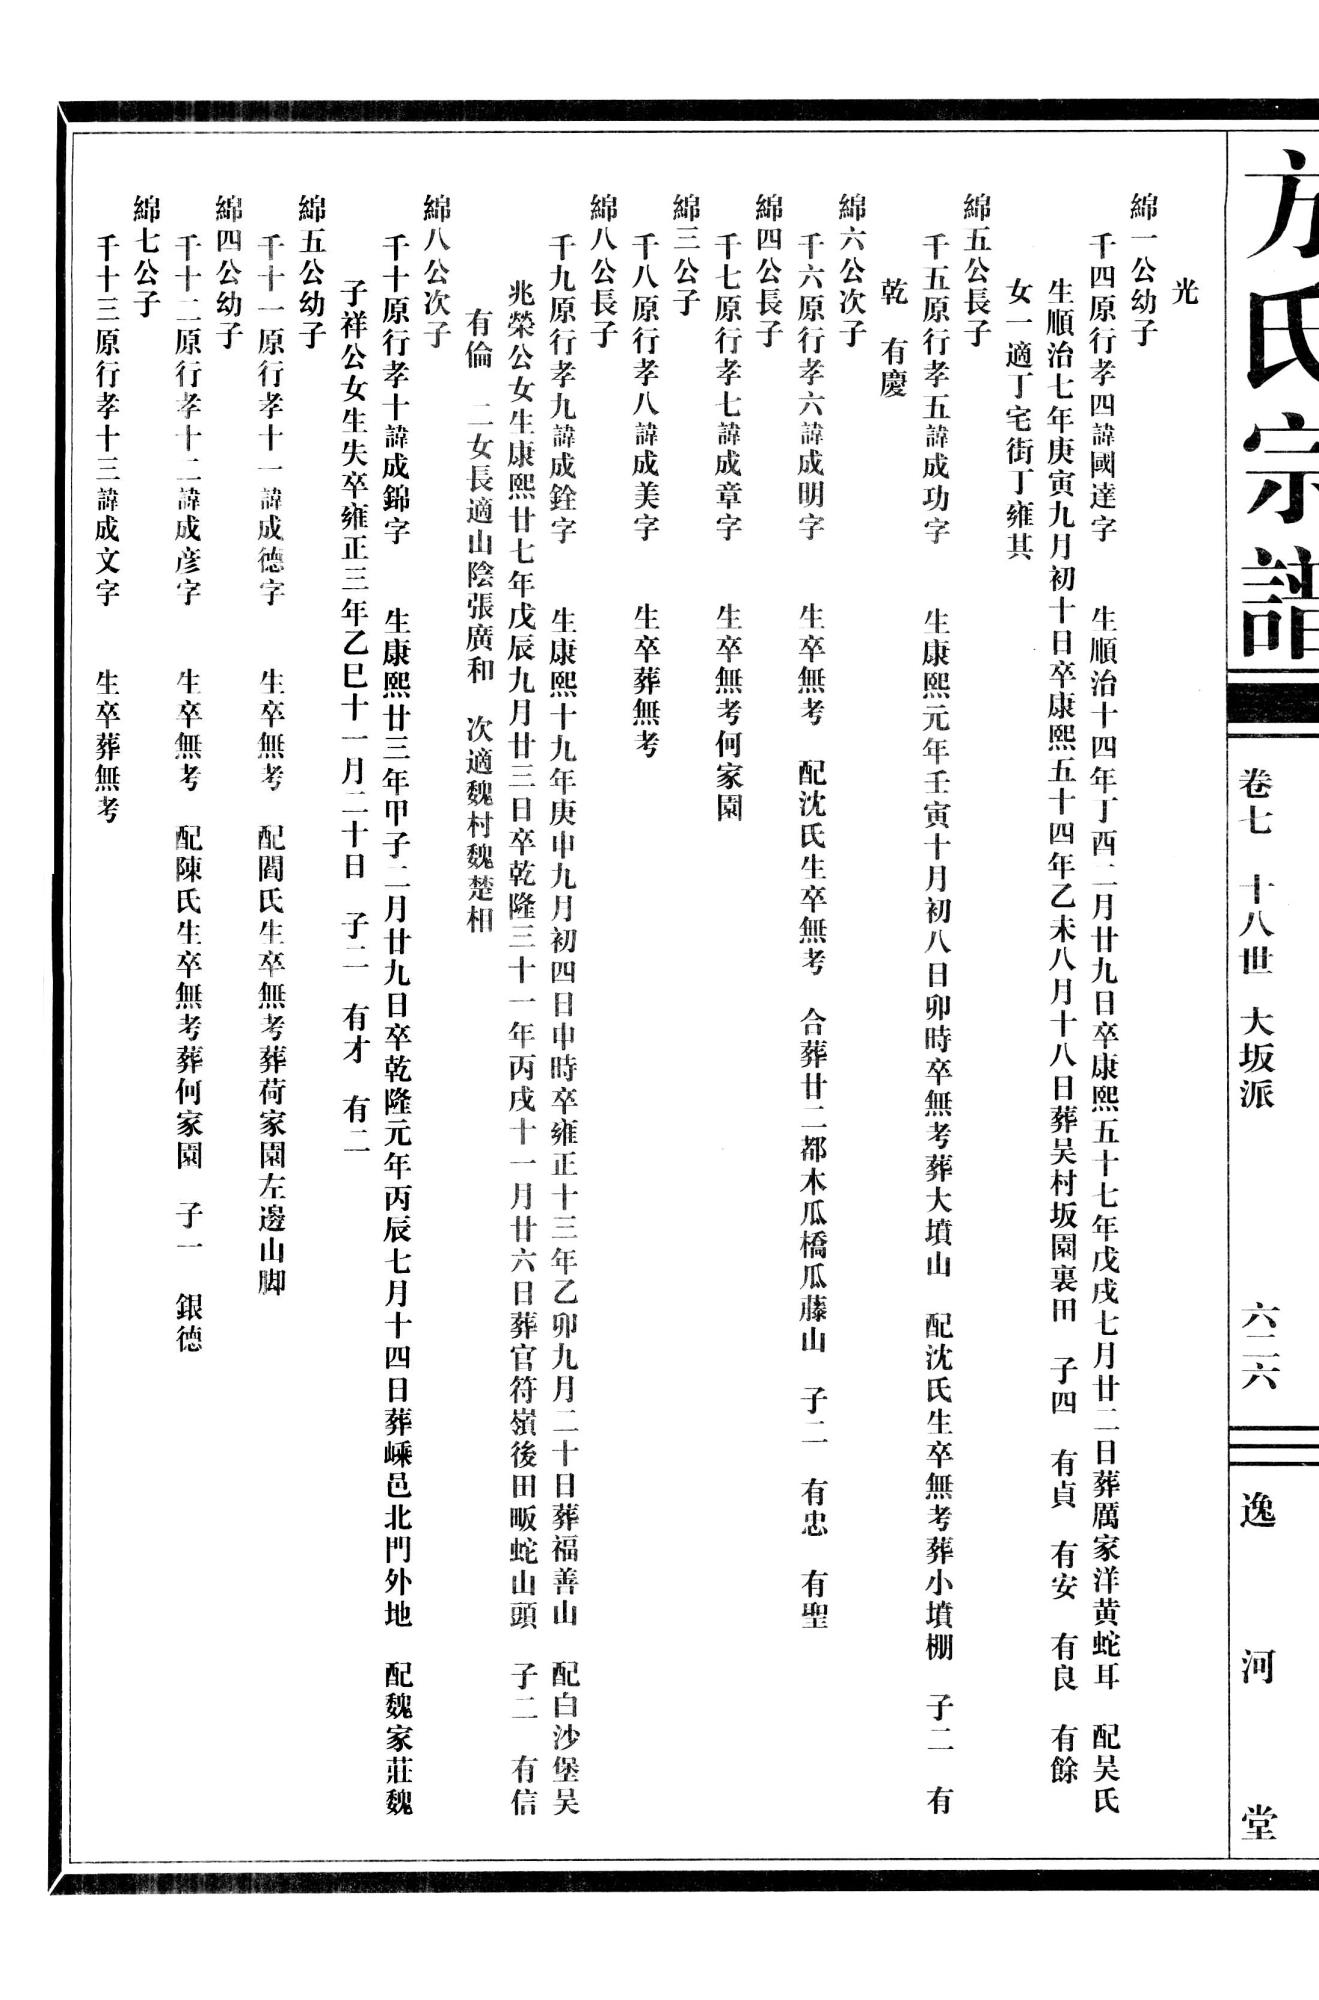 方氏宗譜
卷七 十八世 大坂派
六二六
逸河堂
光
綿一公幼子
千四原行孝四諱國達字 生順治十四年丁酉二月廿九日卒康熙五十七年戊戌七月廿二日葬厲家洋黄蛇耳 配吴氏
生順治七年庚寅九月初十日卒康熙五十四年乙未八月十八日葬吴村坂園裏田 子四 有貞 有安 有良 有餘
女一適丁宅街丁雍其
綿五公長子
千五原行孝五諱成功字 生康熙元年壬寅十月初八日卯時卒無考葬大墳山 配沈氏生卒無考葬小墳棚 子二 有
乾 有慶
綿六公次子
千六原行孝六諱成明字 生卒無考 配沈氏生卒無考 合葬廿二都木瓜橋瓜藤山 子二 有忠 有聖
綿四公長子
千七原行孝七諱成章字 生卒無考何家園
綿三公子
千八原行孝八諱成美字 生卒葬無考
綿八公長子
千九原行孝九諱成銓字 生康熙十九年庚申九月初四日申時卒雍正十三年乙卯九月二十日葬福善山 配白沙堡吴
兆榮公女生康熙廿七年戊辰九月廿三日卒乾隆三十一年丙戌十一月廿六日葬官符嶺後田畈蛇山頭 子二 有信
有倫 二女長適山陰張廣和 次適魏村魏楚相
綿八公次子
千十原行孝十諱成錦字 生康熙廿三年甲子二月廿九日卒乾隆元年丙辰七月十四日葬嵊邑北門外地 配魏家莊魏
子祥公女生失卒雍正三年乙巳十一月二十日 子二 有才 有二
綿五公幼子
千十一原行孝十一諱成德字 生卒無考 配閻氏生卒無考葬荷家園左邊山脚
綿四公幼子
千十二原行孝十二諱成彦字 生卒無考 配陳氏生卒無考葬何家園 子一 銀德
綿七公子
千十三原行孝十三諱成文字 生卒葬無考